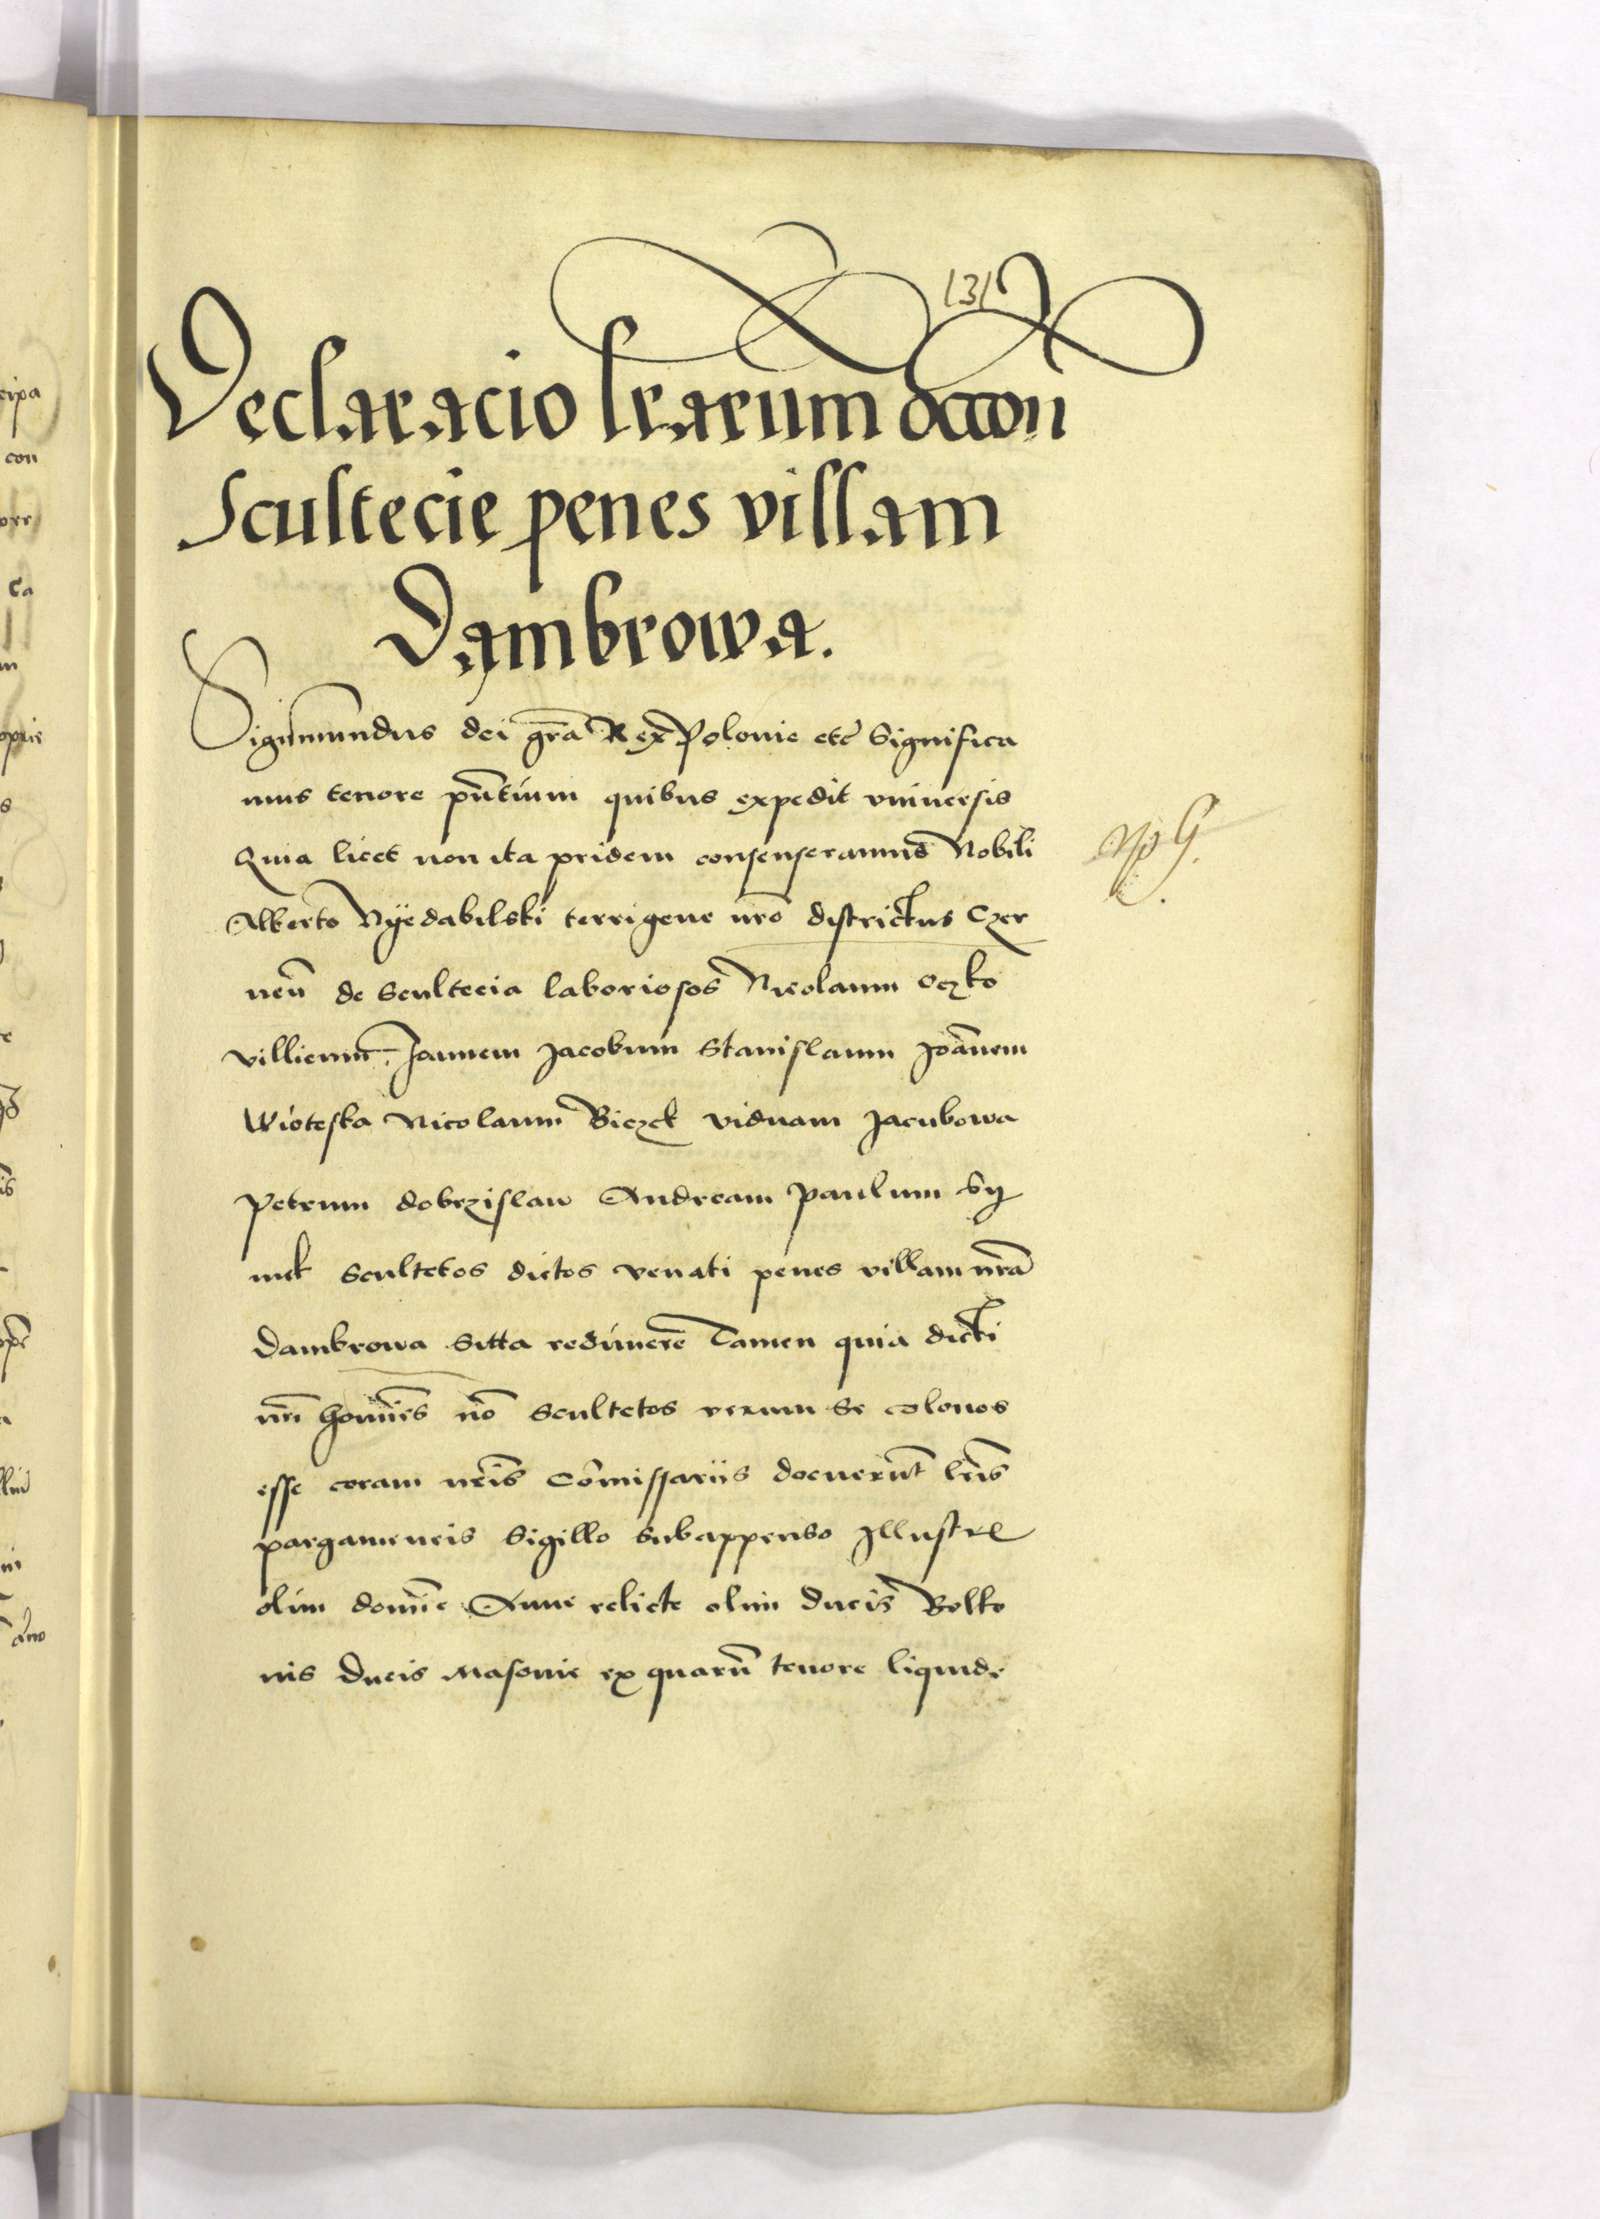 131
Declaracio lrarum occon
Scultecie penes villam
Dambrowa.
Sigismundus dei gra Rex Polonie etc Significa
mus tenore pntium quibus expedit vniuersis
Quia licet non ita pridem consenseramus Nobili
Alberto Nyedabilski terrigene nro districtus Czer
nen de Scultecia laboriosos Nicolaum oczko
villicum Jannem Jacobum Stanislaum Joannem
Wioteska Nicolaum Biezek viduam Jacubowa
Petrum dobrzislaw Andream Paulum Sy
mek Scultetos dictos venati penes villam nram
Dambrowa Sitta redimere Tamen quia dicti
nri homines no Scultetos verum se colonos
esse coram nris Comissariis docuerunt lris
pargameneis Sigillo Subappenso Illustr
olim domine Anne relicte olim Ducis Bolko
nis Ducis Masouie ex quarum tenore liquide